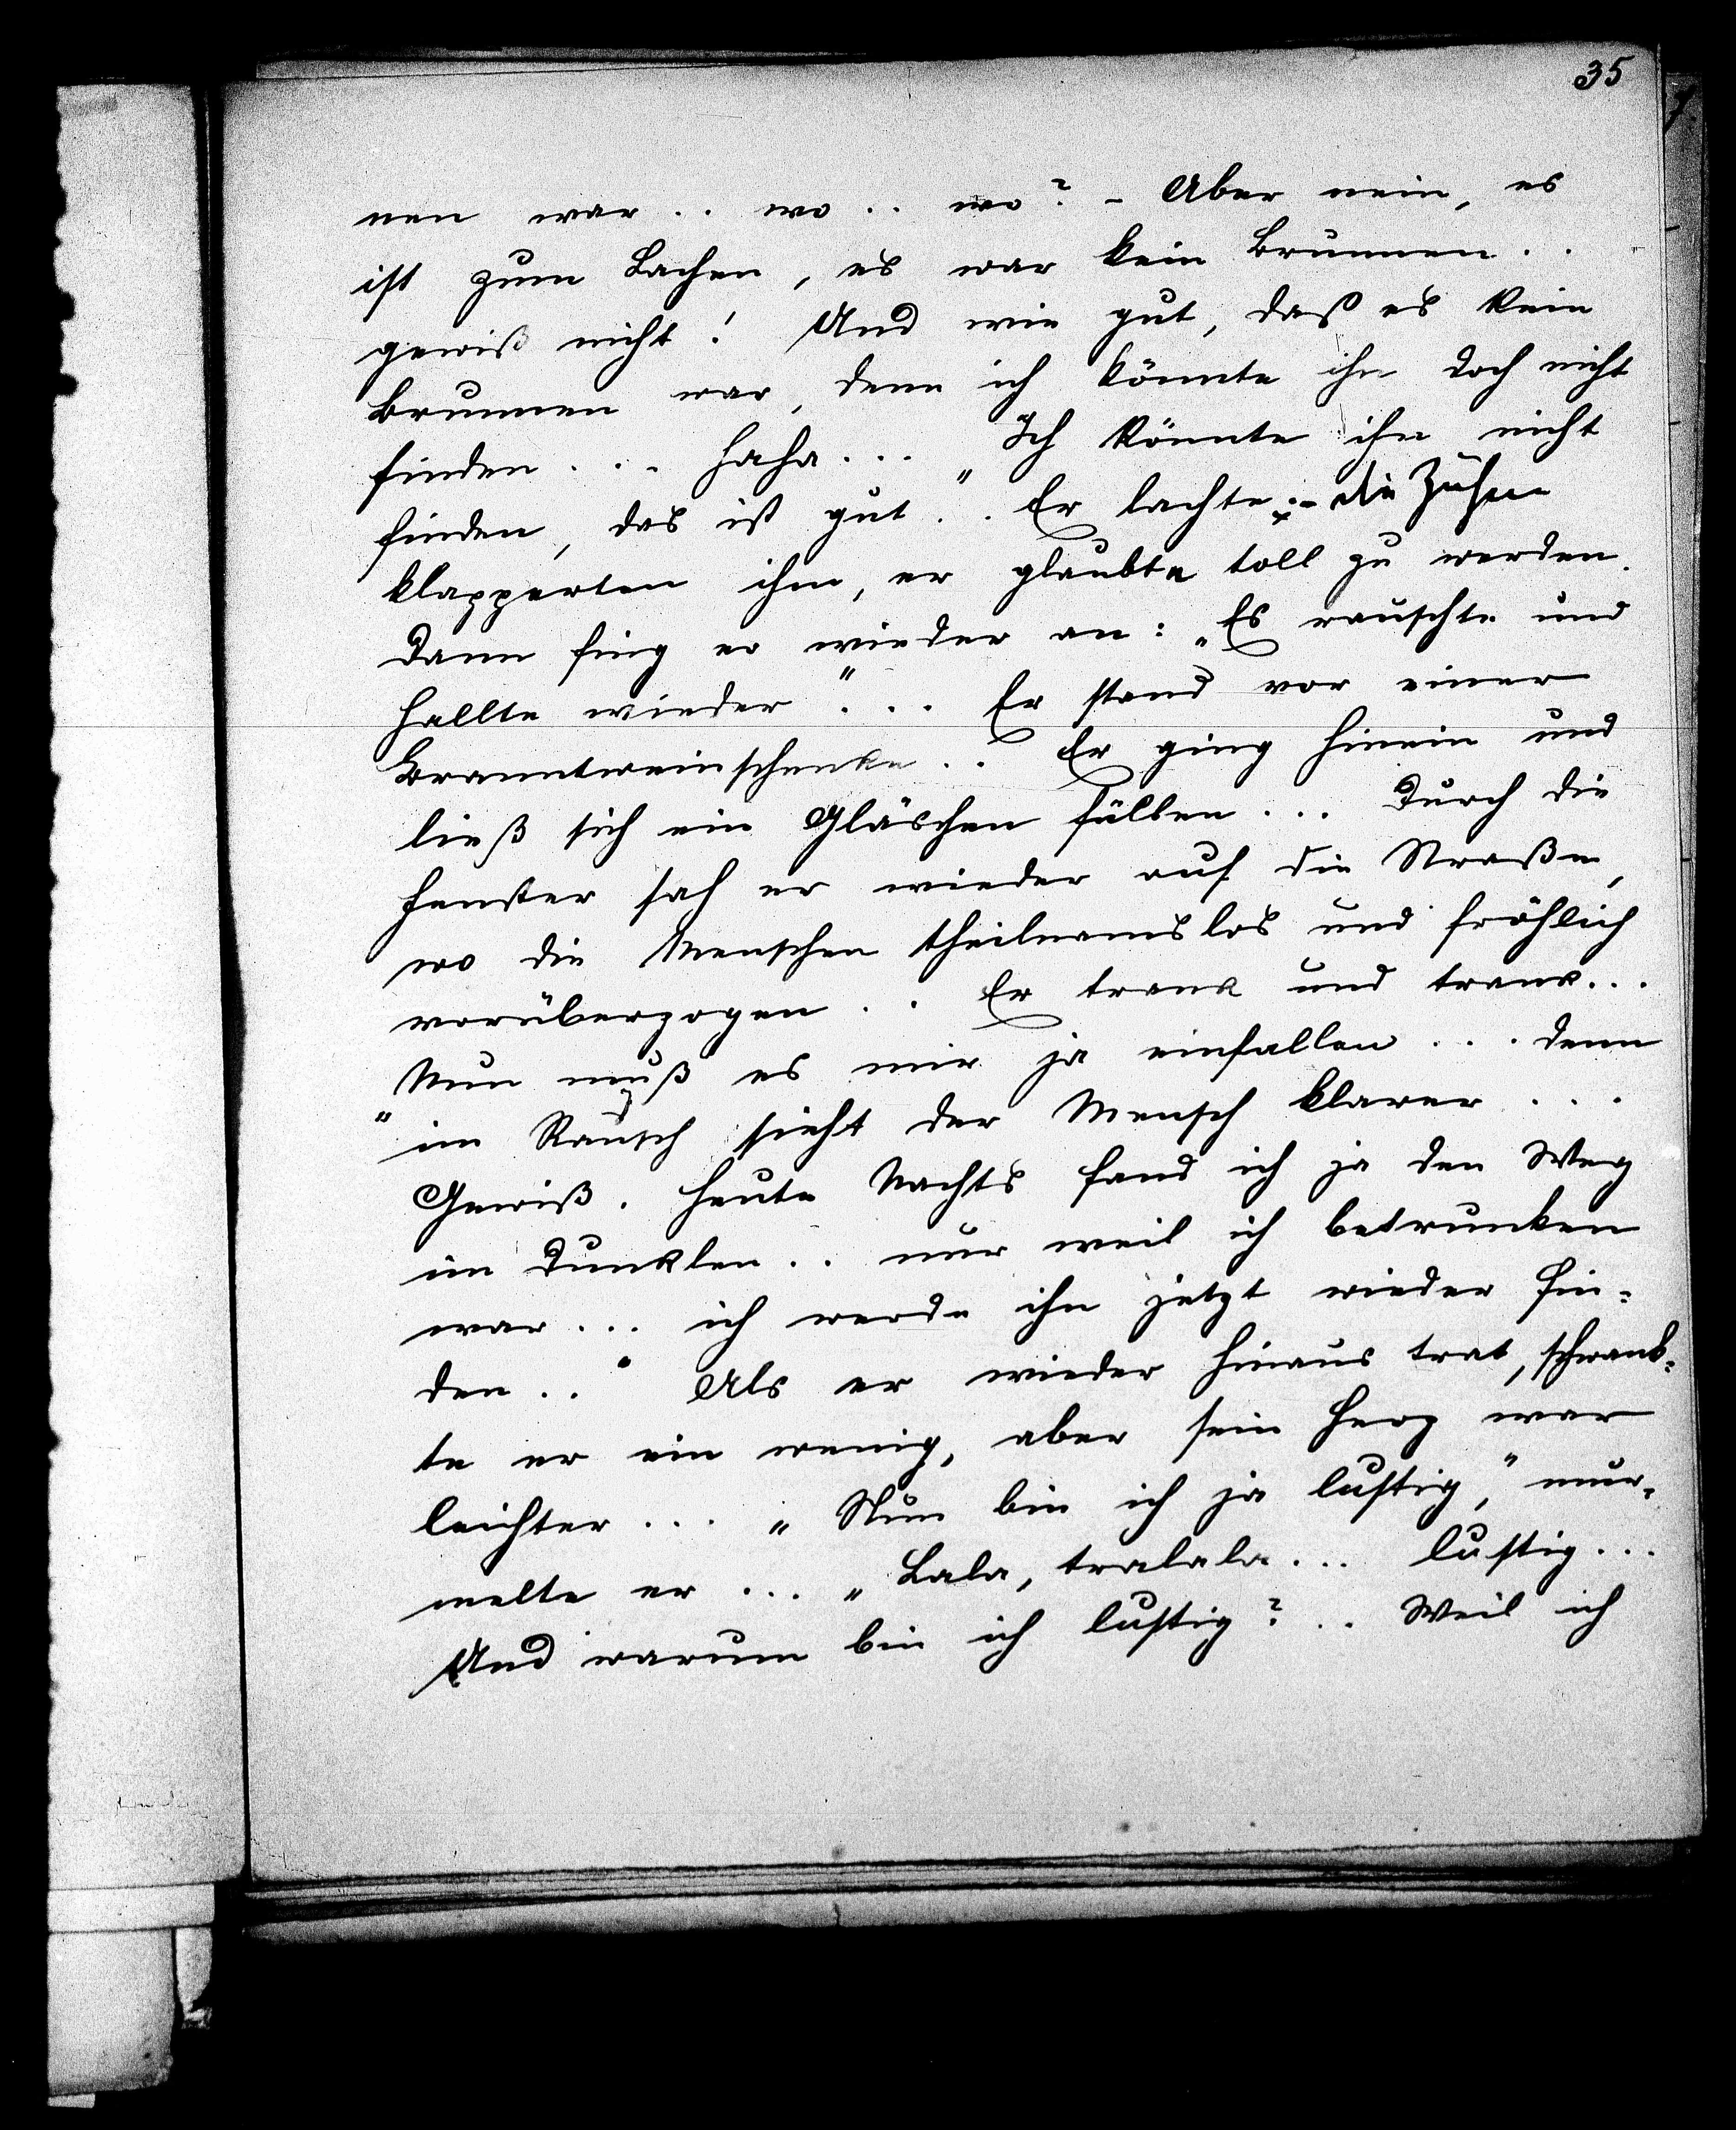 35
nen war .. wo .. wo? - Aber nein, es
ist zum Lachen, es war kein Brunnen ..
gewiß nicht! Und wie gut, daß es kein
Brunnen war, denn ich könnte ihn doch nicht
finden ... haha ... „Ich könnte ihn nicht
finden, das ist gut.“ . Er lachte; - die Zähne
klapperten ihm, er glaubte toll zu werden.
Dann fing er wieder an: „Es rauschte und
hallte wieder“ ... Er stand vor einer
Branntweinschenke .. Er ging hinein und
ließ sich ein Gläschen füllen ... Durch die
Fenster sah er wieder auf die Straße,
wo die Menschen theilnamslos und fröhlich
vorüberzogen .. Er trank und trank ...
Nun muß es mir ja einfallen ... denn
„im Rausch sieht der Mensch klarer ...
Gewiß. Heute Nachts fand ich ja den Weg
im Dunklen .. nur weil ich betrunken
war ... ich werde ihn jetzt wieder fin=
den .. “ Als er wieder hinaus trat, schwank=
te er ein wenig, aber sein Herz war
leichter ... „Nun bin ich ja lustig,“ mur=
melte er ... „Lala, tralala ... lustig ...
Und warum bin ich lustig? .. Weil ich